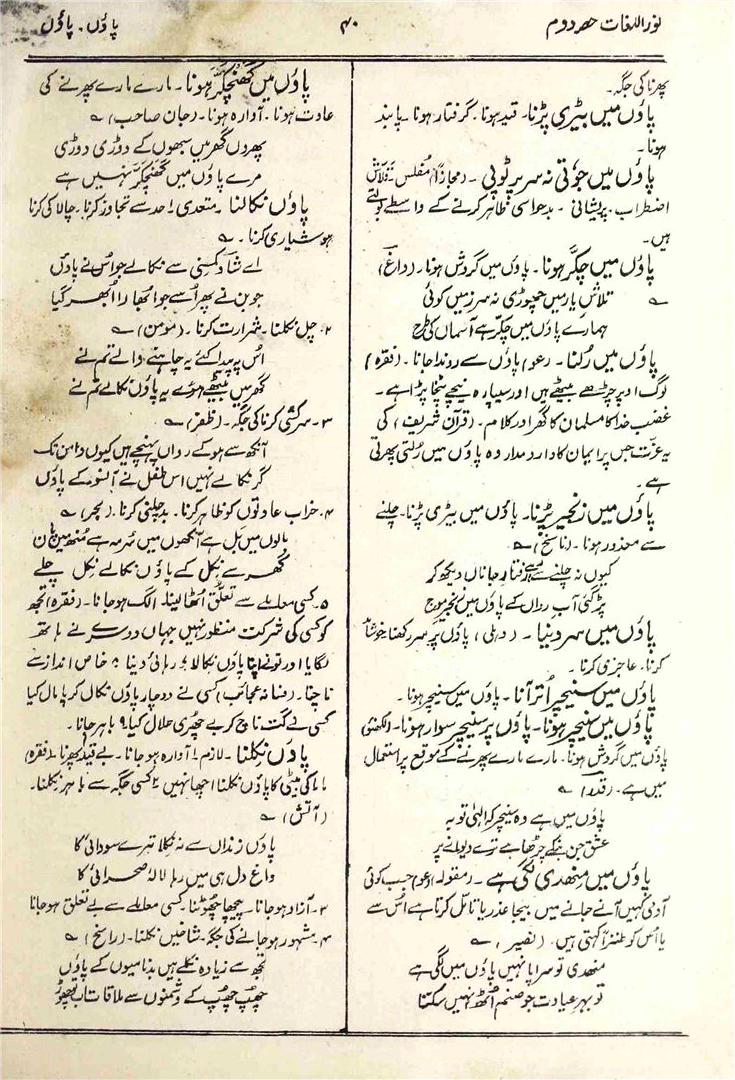 نور اللغات حصہ دوم
۴۰
پاؤں . پاؤں
پھرنا کی جگہ۔
پاؤں میں بیڑی پڑنا۔ قید ہونا۔ گرفتار ہونا۔ پابند
ہونا۔
پاؤں میں جوتی نہ سر پر ٹوپی۔ (مجازاً) مفلس قلاش
اضطراب۔ پریشانی۔ بدحواسی ظاہر کرنے کے واسطے بولتے
ہیں۔
پاؤں میں چکّر ہونا۔ پاؤں میں گردش ہونا۔ (داغ)
تلاشِ یار میں چھوڑی نہ سرزمیں کوئی
ہمارے پاؤں میں چکّر ہے آسماں کی طرح
پاؤں میں رُلنا۔ (عو) پاؤں سے روندا جانا۔ (فقرہ)
لوگ اوپر چڑھے بیٹھے ہیں اور سیپارہ نیچے پڑا ہے۔
غضب خدا کا مسلمان کا گھر اور کلام۔ (قرآن شریف) کی
یہ عزّت جس پر ایمان کا دار و مدار وہ پاؤں میں رُلتی پھرتی
ہے۔
پاؤں میں زنجیر پڑنا۔ پاؤں میں بیڑی پڑنا۔ چلنے
سے معذور ہونا۔ (ناسخ)
کیوں نہ چلنے سے رفتارِ جاناں دیکھ کر
پڑ گئی آبِ رواں کے پاؤں میں زنجیرِ موج
پاؤں میں سر دینا۔ (دہلی) پاؤں پر سر رکھنا خوشامد
کرنا۔ عاجزی کرنا۔
پاؤں میں سنیچر اُتر آنا۔ پاؤں میں سنیچر ہونا۔
پاؤں میں سنیچر ہونا۔ پاؤں پر سنیچر سوار ہونا۔ (لکھنؤ)
پاؤں میں گردش ہونا۔ مارے مارے پھرنے کے موقع پر استعمال
میں ہے۔
پاؤں میں ہے وہ سنیچر کہ الٰہی توبہ
عشق جن بنکے چڑھا ہے ترے دیوانے پر
پاؤں میں مہندی لگی ہے۔ (مقولہ۔ عو) جب کوئی
آدمی کہیں آنے جانے میں بیجا عذر یا تامّل کرتا ہے اُس سے
یا اُس کو طنزاً کہتی ہیں۔ (نصیر)
مہندی تو سراپا نہیں پاؤں میں لگی ہے
تو بہرِ عیادت جو صنم اُٹھ نہیں سکتا
پاؤں میں گھنچکّر ہونا۔ مارے مارے پھرنے کی
عادت ہونا۔ آوارہ ہونا۔ (جان صاحب)
پھروں گھر میں سبھوں کے دوڑی دوڑی
مرے پاؤں میں گھنچکّر نہیں ہے
پاؤں نکالنا۔ متعدی ۱۔ حد سے تجاوز کرنا۔ چالاکی کرنا
ہوشیاری کرنا۔
اے شاد کمسنی سے نکالے جو اُس نے پاؤں
جوبن نے پھر اُسے جو اُبھارا اُبھر گیا
۲۔ چل نکلنا۔ شرارت کرنا۔ (مومن)
اس پر پیدا کئے یہ چاہنے والے تم نے
گھر میں بیٹھے ہوئے یہ پاؤں نکالے تم نے
۳۔ سرکشی کرنا کی جگہ۔ (ظفر)
آنکھ سے ہو کے رواں پہنچے ہیں کیوں دامن تک
گر نکالے نہیں اس طفل نے آنسو کے پاؤں
۴۔ خراب عادتوں کو ظاہر کرنا۔ بدچلنی کرنا۔ (بحر)
بالوں میں بَل ہے آنکھوں میں سُرمہ ہے مُنھ میں پان
گھر سے نِکل کے پاؤں نکالے نِکل چلے
۵۔ کسی معاملے سے تعلّق اُٹھا لینا۔ الگ ہو جانا۔ (فقرہ) تجھ
کو کسی کی شرکت منظور نہیں جہاں دوسرے نے ہاتھ
لگایا اور تو نے اپنا پاؤں نکالا ۶۔ رہائی دینا ۷۔ خاص انداز سے
ناچنا۔ (فسانۂ عجائب) کسی نے دو چار پاؤں نکال کر پامال کیا
کسی نے گت ناچ کر بے چھری حلال کیا ۹۔ باہر جانا۔
پاؤں نکلنا۔ لازم ۱۔ آوارہ ہو جانا۔ بے قید پھرنا۔ (فقرہ)
ماما کی بیٹی کا پاؤں نکلنا اچھا نہیں ۲۔ کسی جگہ سے باہر نکلنا۔
(آتش)
پاؤں زنداں سے نہ نکلا تیرے سودائی کا
داغ دل ہی میں رہا لالۂ صحرائی کا
۳۔ آزاد ہو جانا۔ پیچھا چھوٹنا۔ کسی معاملے سے بے تعلق ہو جانا
۴۔ مشہور ہو جانے کی جگہ۔ شاخیں نکلنا۔ (راسخ)
تجھ سے زیادہ نکلے ہیں بدنامیوں کے پاؤں
چھپ چھپ کے دشمنوں سے ملاقات اب تو چھوڑ